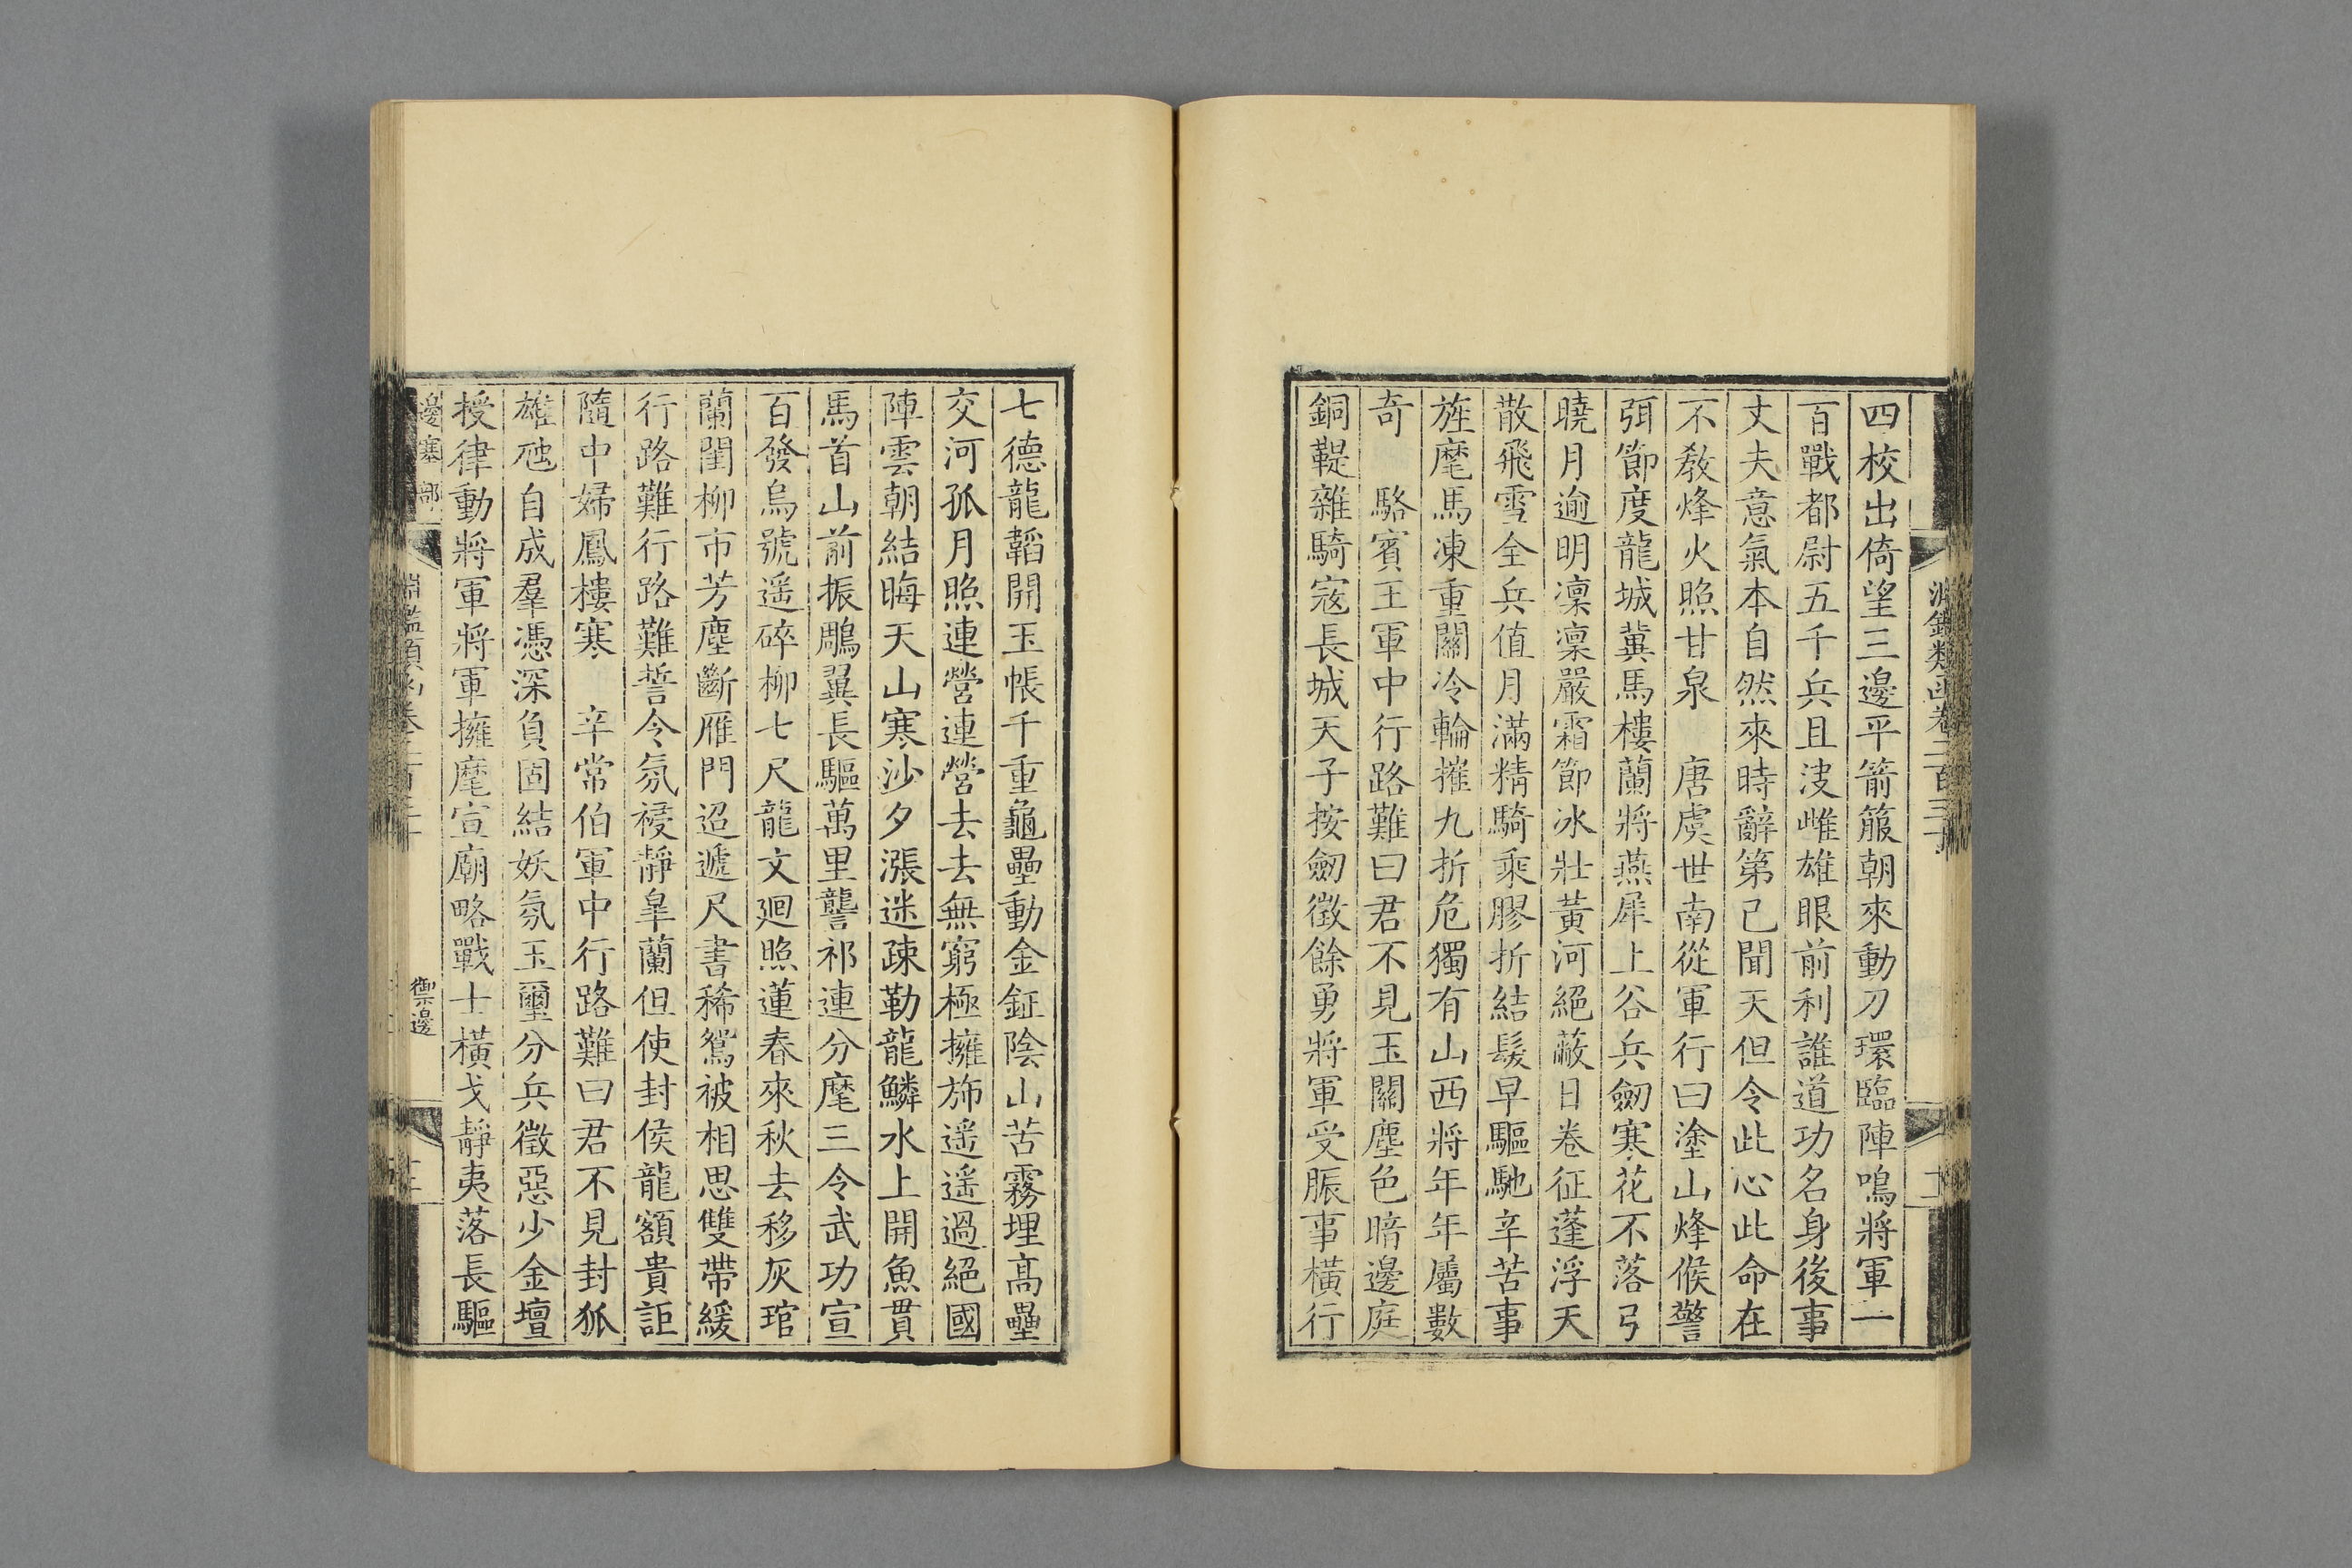 淵鑑類函卷二百三十
四校出倚望三邊平箭箙朝來動刀環臨陣鳴將軍一
百戰都尉五千兵且決雌雄眼前利誰道功名身後事
丈夫意氣本自然來時辭第已聞天但令此心此命在
不敎烽火照甘泉　唐虞世南從軍行曰塗山烽候警
弭節度龍城冀馬樓蘭將燕犀上谷兵劒寒花不落弓
曉月逾明凜凜嚴霜節冰壯黃河絕蔽日卷征蓬浮天
散飛雪全兵值月滿精騎乘膠折結髮早驅馳辛苦事
旌麾馬凍重關冷輪摧九折危獨有山西將年年屬數
奇　駱賓王軍中行路難曰君不見玉關塵色暗邊庭
銅鞮雜騎寇長城天子按劒徵餘勇將軍受脤事橫行
七德龍韜開玉帳千重龜壘動金鉦陰山苦霧埋高壘
交河孤月照連營連營去去無窮極擁斾遥遥過絕國
陣雲朝結晦天山寒沙夕漲迷疎勒龍鱗水上開魚貫
馬首山前振鵰翼長驅萬里讋祁連分麾三令武功宣
百發烏號遥碎柳七尺龍文迥照蓮春來秋去移灰琯
蘭閨柳市芳塵斷雁門迢遞尺書稀鴛被相思雙帶緩
行路難行路難誓令氛祲靜臯蘭但使封侯龍額貴詎
隨中婦鳳樓寒　辛常伯軍中行路難曰君不見封狐
雄虺自成羣憑深負固結妖氛玉璽分兵徵惡少金壇
授律動將軍將軍擁麾宣廟略戰士橫戈靜夷落長驅
邊塞部
淵鑑類函卷二百三十
禦邊